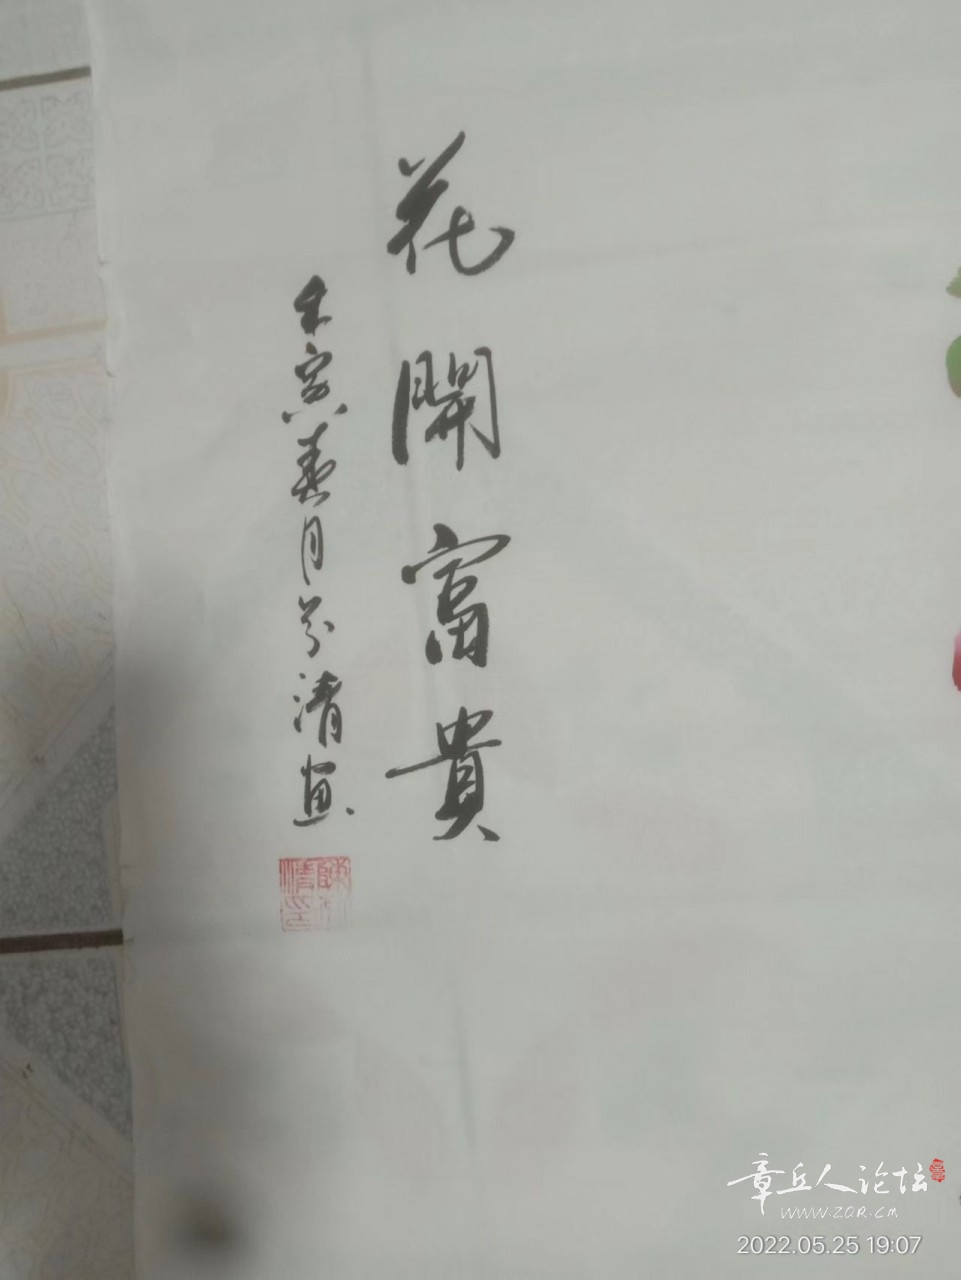 花開富貴
壬寅春月芬清畫
章丘人论坛
www.ZQR.CM
2022.05.25 19:07